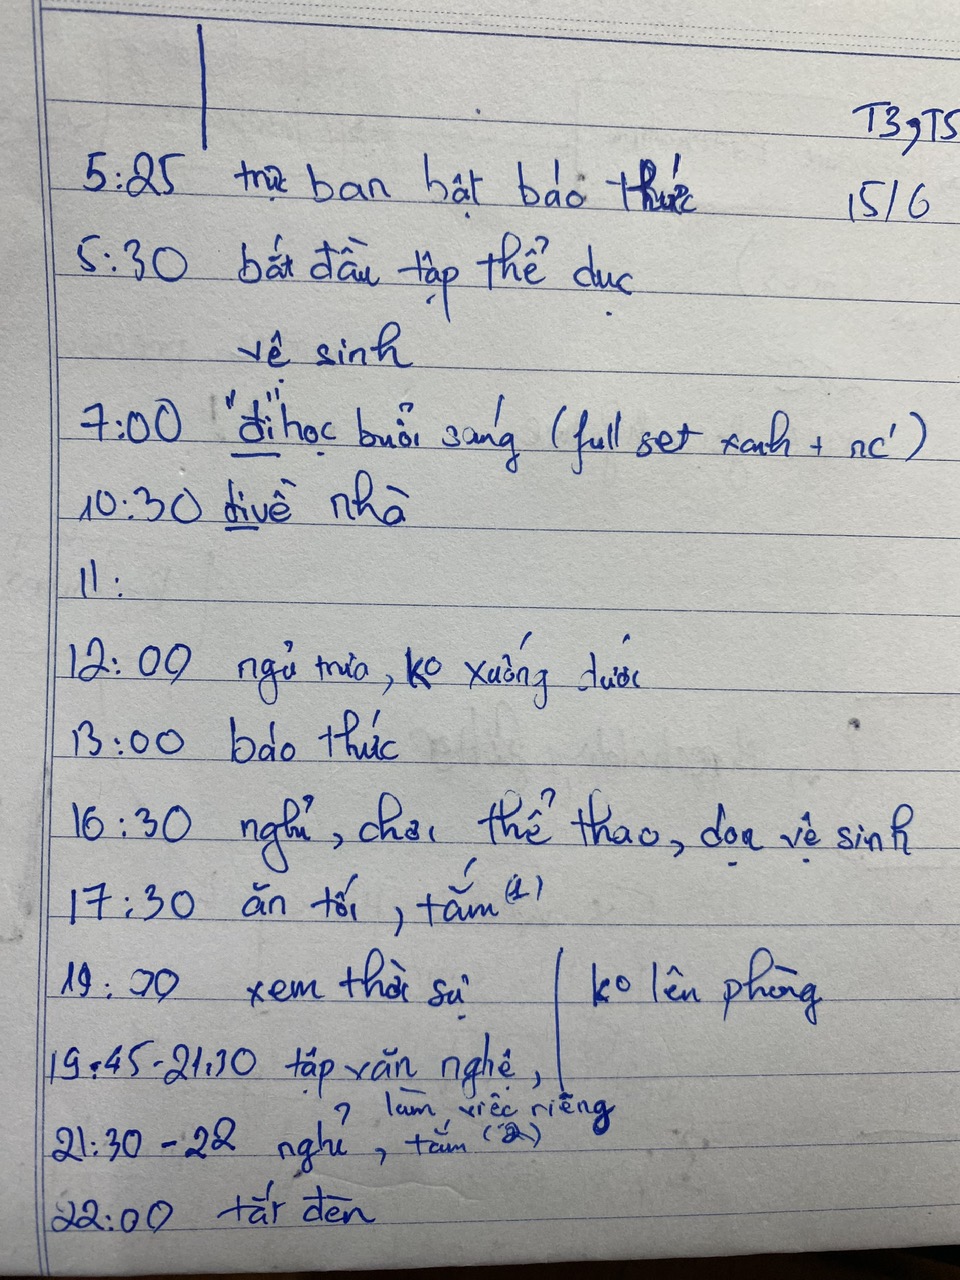 T3, T5
5:25 trực ban bật báo thức 15/6
5:30 bắt đầu tập thể dục
vệ sinh
7:00 "đi" học buổi sáng (full set xanh + nc')
10:30 đi về nhà
11:
12:00 ngủ trưa, ko xuống dưới
13:00 báo thức
16:30 nghỉ, chơi thể thao, dọn vệ sinh
17:30 ăn tối, tắm (1)
19:00 xem thời sự ko lên phòng
19:45-21:30 tập văn nghệ,
làm việc riêng
21:30-22 nghỉ, tắm (2)
22:00 tắt đèn